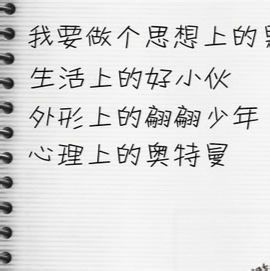 我要做个思想上的
生活上的好小伙
外形上的翩翩少年
心理上的奥特曼